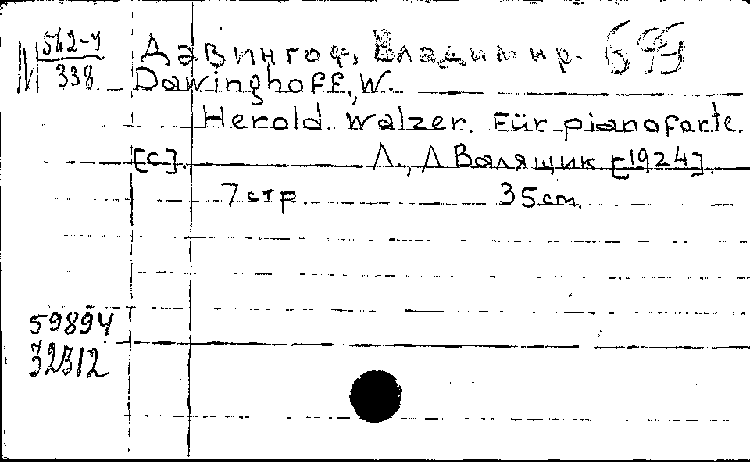 М 512-4
338
Давингоф, Владимир.
Dawinghoff, W.
Herold. Walzer. Für pianoforte.
[с]. Л., Л Валящик [1924].
7 стр 35 cm.
59894
32312